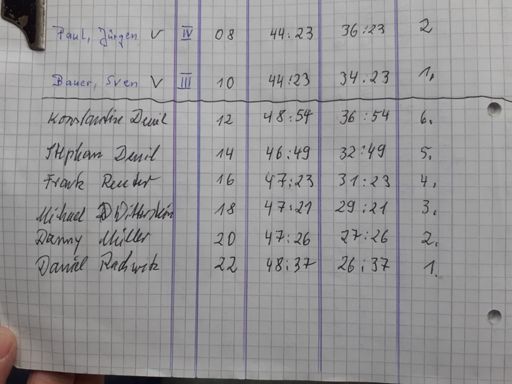 Paul, Jürgen V IV 08 44:23 36:23 2
Bauer, Sven V III 10 44:23 34:23 1.
Konstantin Denil 12 48:54 36:54 6.
Stephan Denil 14 46:49 32:49 5.
Frank Reuter 16 47:23 31:23 4.
Michael 18 47:21 29:21 3.
Danny Müller 20 47:26 27:26 2.
Daniel 22 48:37 26:37 1.